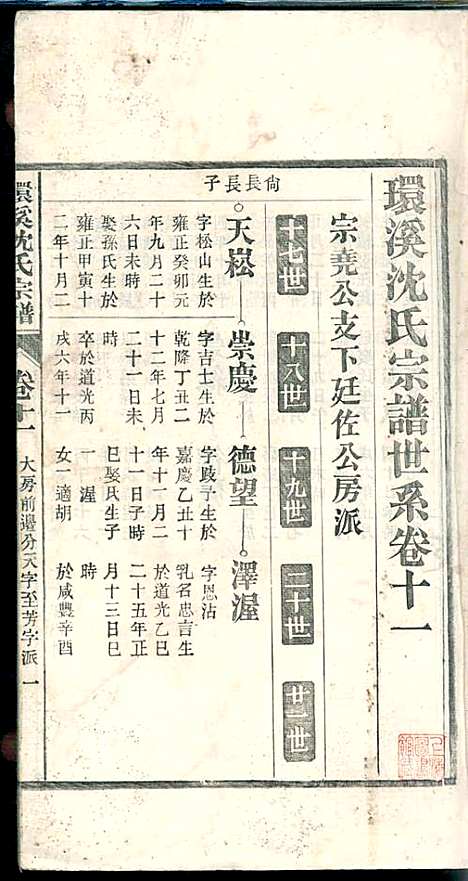 環溪沈氏宗譜世系卷十一
宗堯公支下廷佐公房派
十七世
十八世
十九世
二十世
廿一世
尙長長子
天崧
字崧山生於
雍正癸卯元
年九月二十
六日未時
娶孫氏生於
雍正甲寅十
二年十月二
崇慶
字吉士生於
乾隆丁丑二
十二年七月
二十一日未
時
卒於道光丙
戌六年十一
德望
字跂予生於
嘉慶乙丑十
年十一月二
十一日子時
巳娶氏生子
一渥
女一適胡
澤渥
字恩沾
乳名忠言生
於道光乙巳
二十五年正
月十三日巳
時
於咸豐辛酉
環溪沈氏宗譜
卷十一
大房前邊分天字至芳字派
一